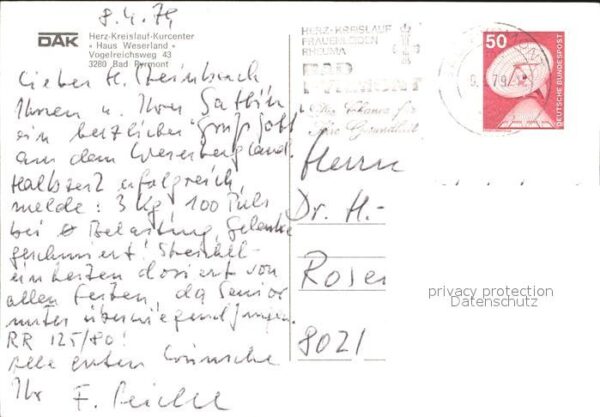 8.4.79
DAK Herz-Kreislauf-Kurcenter
» Haus Weserland «
Vogelreichsweg 43
3280 Bad Pyrmont
Lieber H. Steinbach
Ihnen u. Ihrer Gattin
ein herzliches "Grüß Gott"
aus dem Weserbergland.
Halbzeit erfolgreich,
melde: 3 Kg, 100 Puls
bei Belastung, Gelenke
geschmiert! Streichel-
einheiten dosiert von
allen Seiten, da Senior
unter überwiegend Jungen.
RR 125/80!
alle guten Wünsche
Ihr F.
HERZ-KREISLAUF
FRAUENLEIDEN
RHEUMA
BAD
PYRMONT
Ihre Chance für
Ihre Gesundheit
50
DEUTSCHE BUNDESPOST
Herrn
Dr. H.-
Rosen
8021
privacy protection
Datenschutz